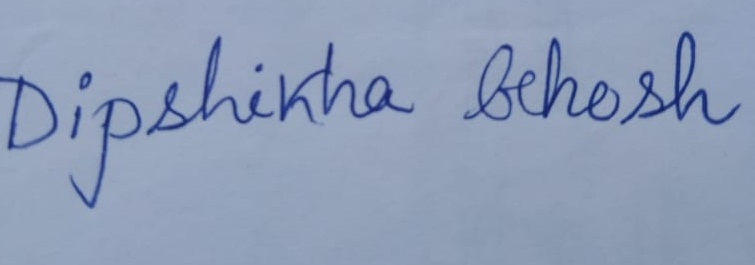 Dipshikha Ghosh